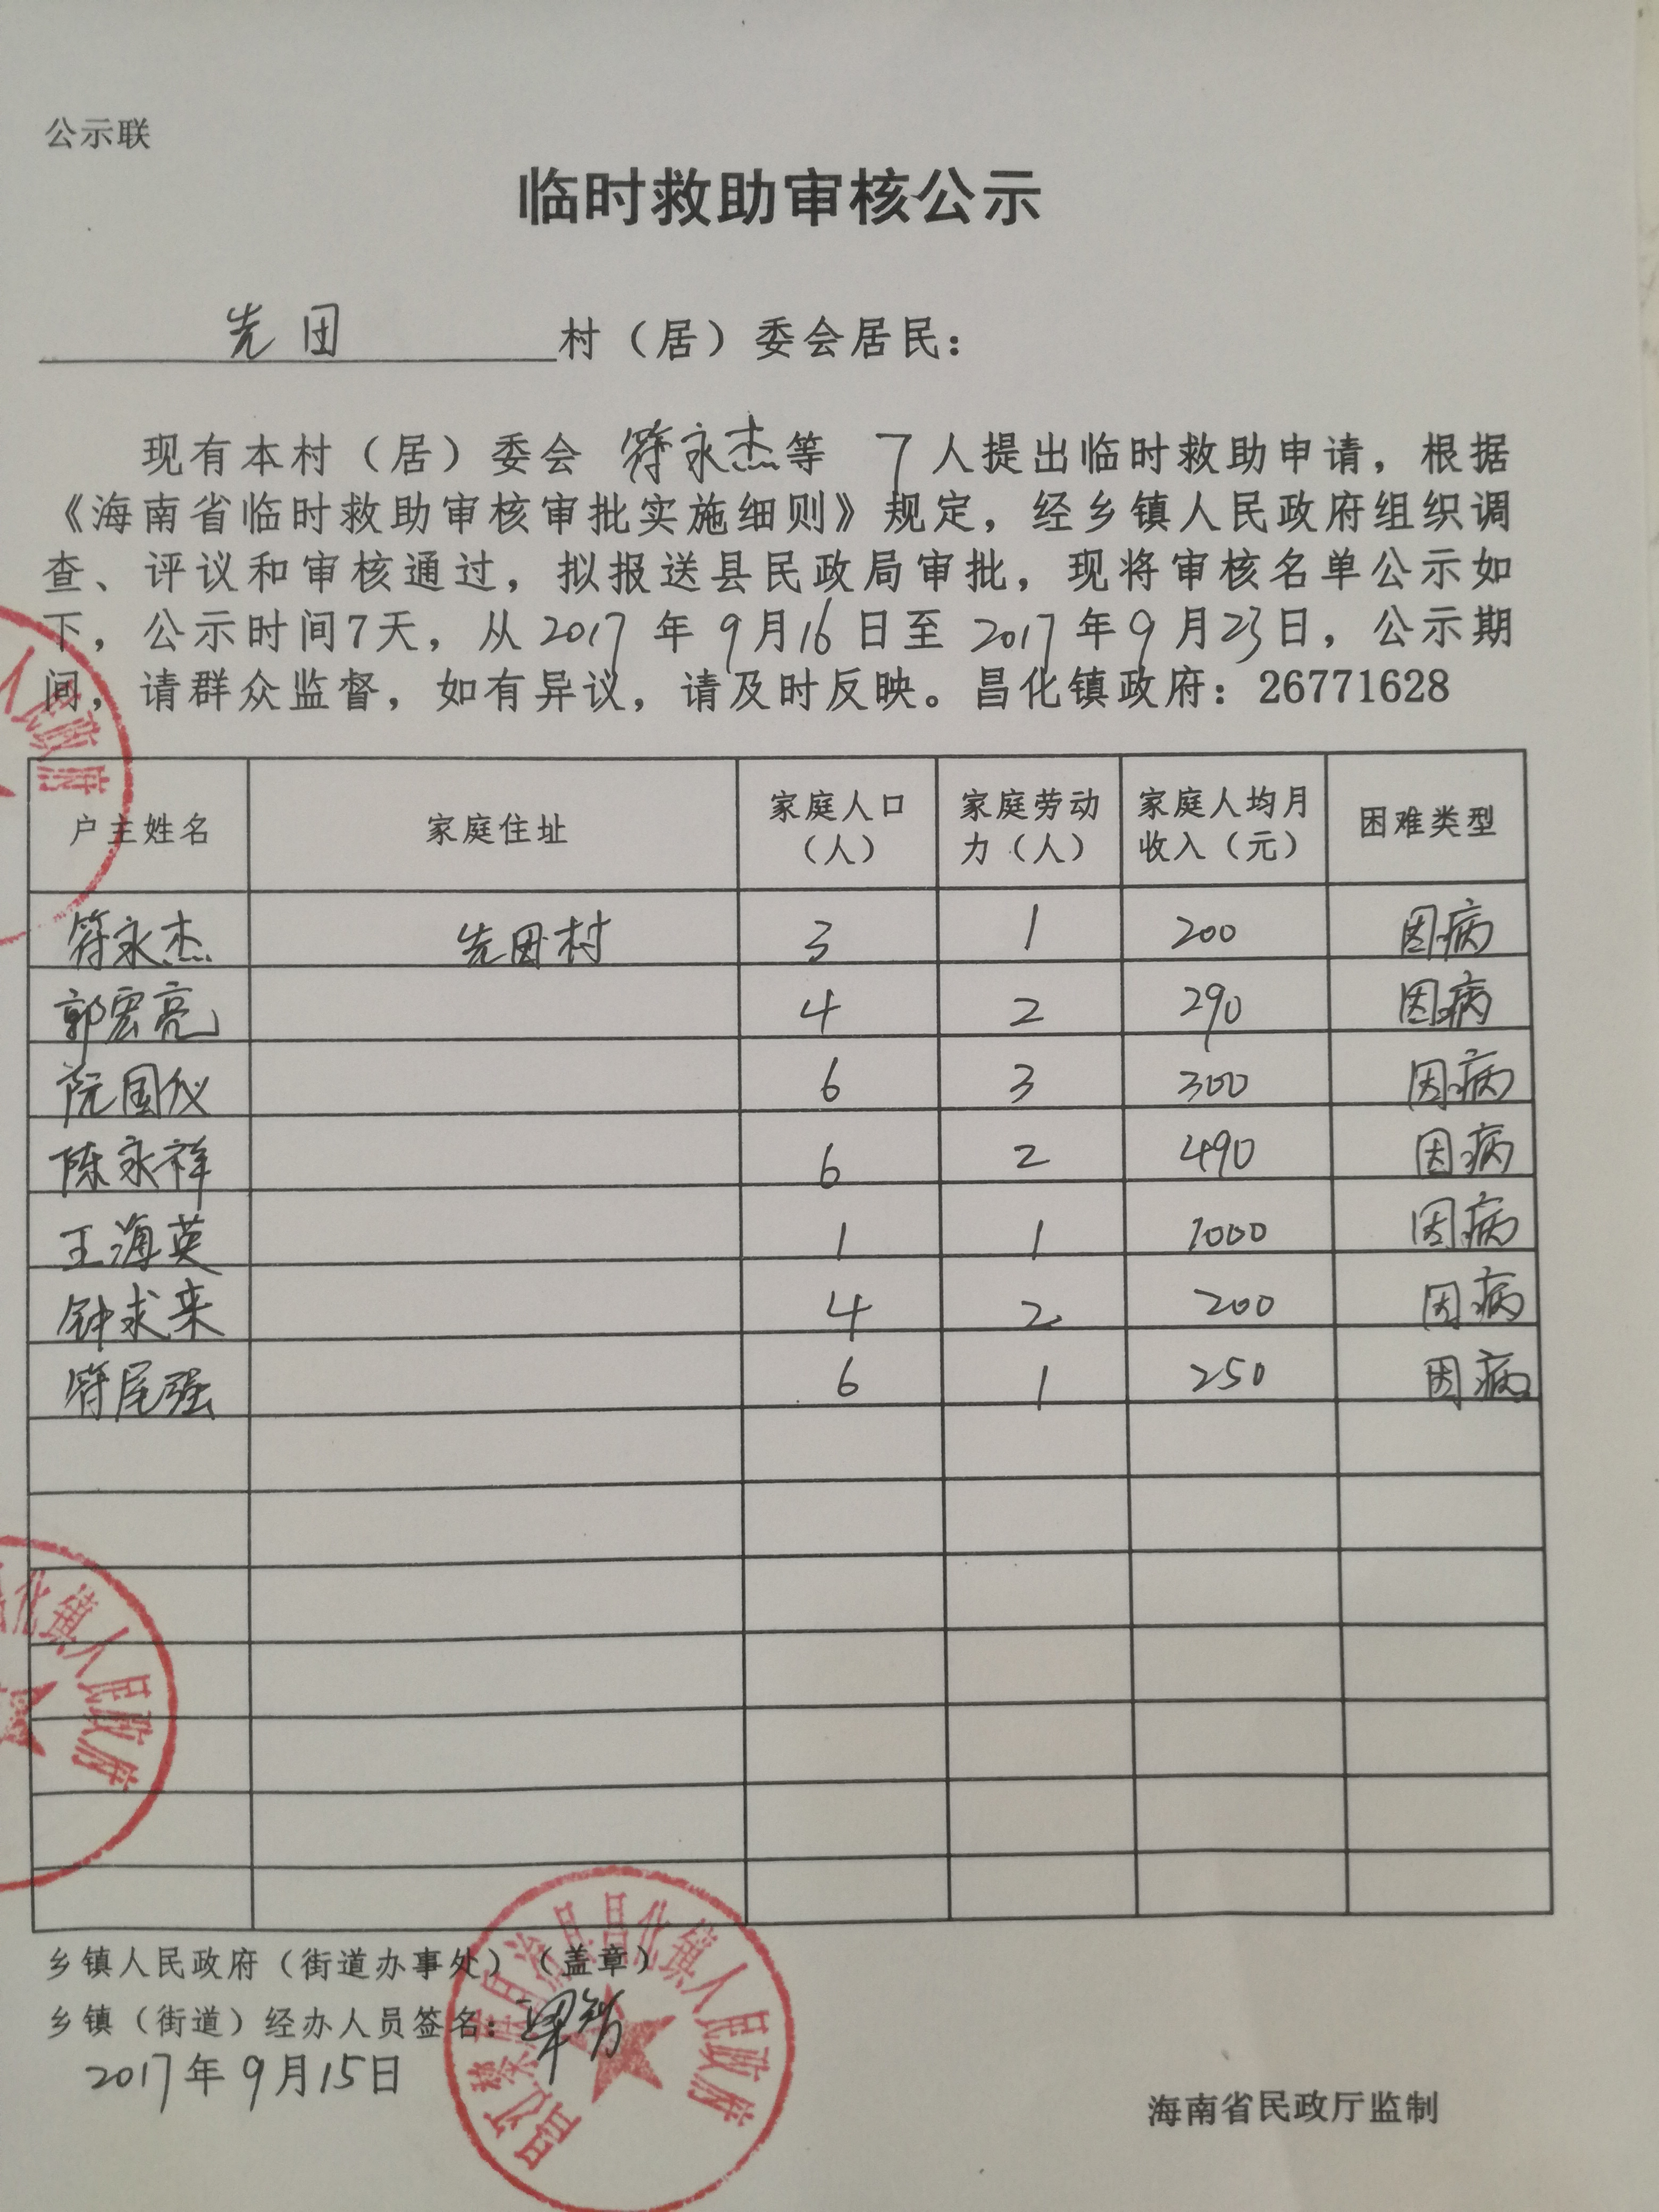 公示联
临时救助审核公示
先田村（居）委会居民：
现有本村（居）委会 符永杰等 7人提出临时救助申请，根据
《海南省临时救助审核审批实施细则》规定，经乡镇人民政府组织调
查、评议和审核通过，拟报送县民政局审批，现将审核名单公示如
下，公示时间7天，从2017年9月16日至2017年9月23日，公示期
间，请群众监督，如有异议，请及时反映。昌化镇政府：26771628
户主姓名 家庭住址 家庭人口（人） 家庭劳动力（人） 家庭人均月收入（元） 困难类型
符永杰 先田村 3 1 200 因病
郭宏亮 4 2 290 因病
阮国仪 6 3 300 因病
陈永祥 6 2 490 因病
王海英 1 1 1000 因病
钟求来 4 2 200 因病
符尾强 6 1 250 因病
人民政府
昌化镇人民政府
昌江黎族自治县昌化镇人民政府
乡镇人民政府（街道办事处）（盖章）
乡镇（街道）经办人员签名：
2017年9月15日
海南省民政厅监制